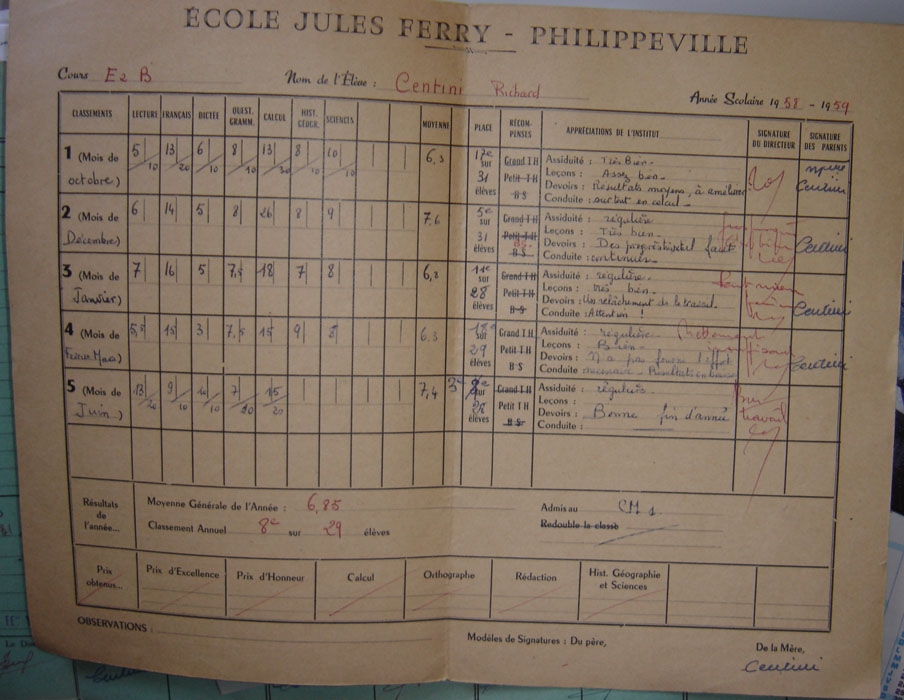 ÉCOLE JULES FERRY - PHILIPPEVILLE
Cours E2 B Nom de l'Élève : Centini Richard Année Scolaire 1958 - 1959
CLASSEMENTS LECTURE FRANÇAIS DICTÉE QUEST. GRAMM. CALCUL HIST. GÉOGR. SCIENCES MOYENNE PLACE RÉCOMPENSES APPRÉCIATIONS DE L'INSTITUT. SIGNATURE DU DIRECTEUR SIGNATURE DES PARENTS
1 (Mois de octobre) 5/10 13/20 6/10 8/10 13/30 8/10 10/10 6,3 17e sur 31 élèves Grand T H Petit T H B S
Assiduité : Très Bien.
Leçons : Assez bien.
Devoirs : Résultats moyens, à améliorer
Conduite : surtout en calcul.
Centini
2 (Mois de Décembre) 6 14 5 8 26 8 9 7,6 5e sur 31 élèves Grand T H Petit T H B S
Assiduité : régulière
Leçons : Très bien.
Devoirs : Des progrès
Conduite : continuer.
Centini
3 (Mois de Janvier) 7 16 5 7,5 18 7 8 6,8 11e sur 28 élèves Grand T H Petit T H B S
Assiduité : régulière.
Leçons : très bien.
Devoirs : Un relâchement de le travail.
Conduite : Attention !
Centini
4 (Mois de 15 3 7,5 15 9 8 6,3 18e sur 29 élèves Grand T H Petit T H B S
Assiduité : régulière
Leçons : Bien.
Devoirs : N'a pas fourni l'effort
Conduite : nécessaire. Résultats en baisse
Centini
5 (Mois de Juin) 13/20 9/10 10/10 7/10 15/20 7,4 3e sur élèves Grand T H Petit T H B S
Assiduité : régulière.
Leçons :
Devoirs : Bonne fin d'année
Conduite :
travail
Résultats de l'année... Moyenne Générale de l'Année : 6,85 Admis au CM1
Classement Annuel 8e sur 29 élèves Redouble la classe
Prix obtenus... Prix d'Excellence Prix d'Honneur Calcul Orthographe Rédaction Hist. Géographie et Sciences
OBSERVATIONS : Modèles de Signatures : Du père, De la Mère,
Centini